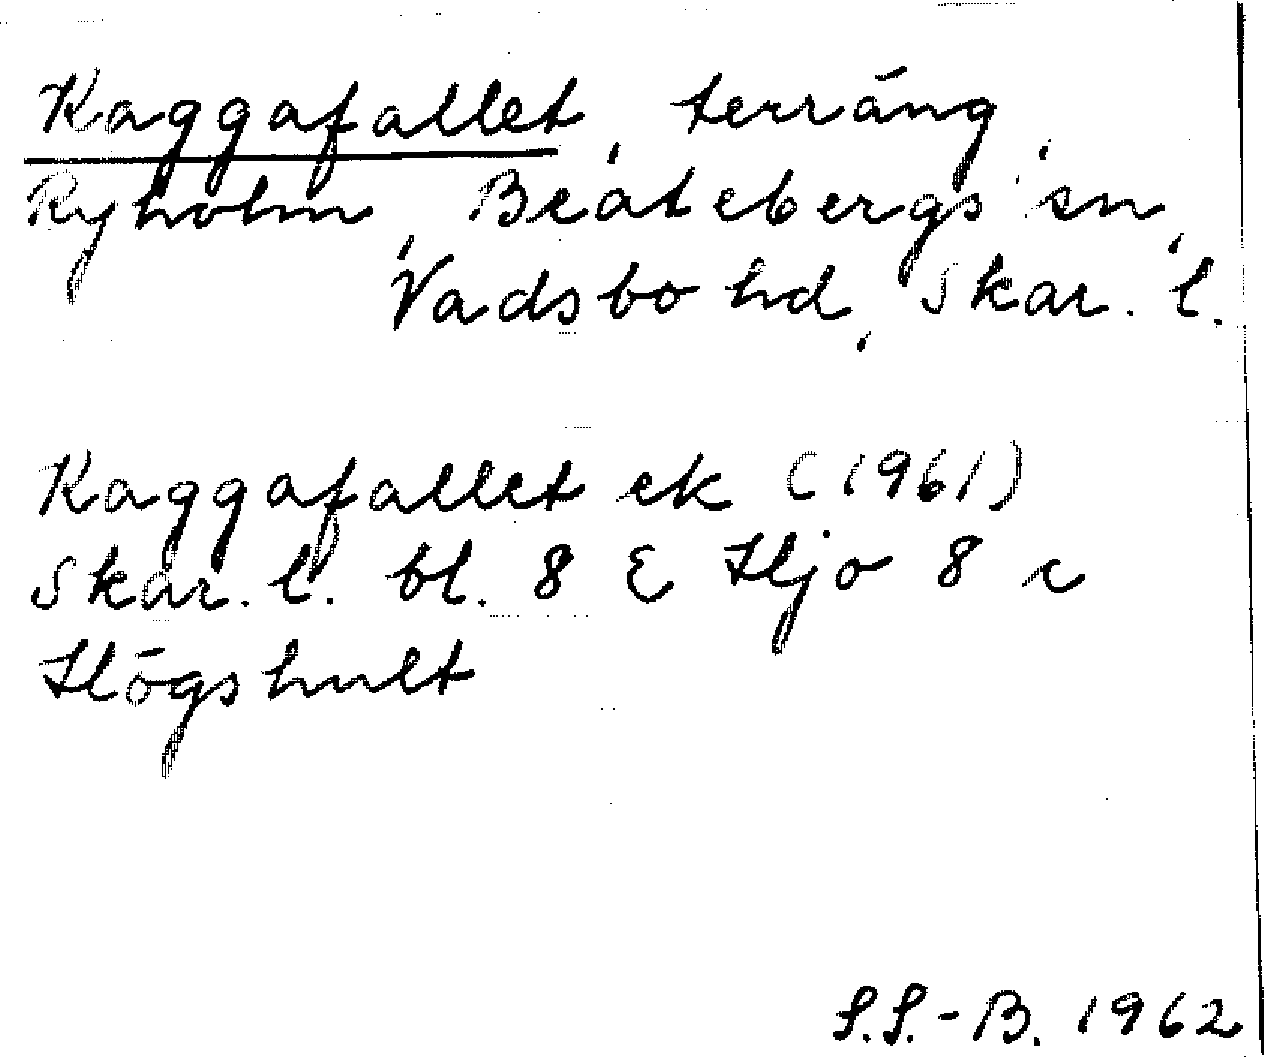 Kaggafallet, terräng,
Ryholm, Beatebergs sn,
Vadsbo hd, Skar. l.
Kaggafallet ek (1961)
Skar. l. bl. 8 E Hjo 8 c
Högshult
S.S.-B. 1962